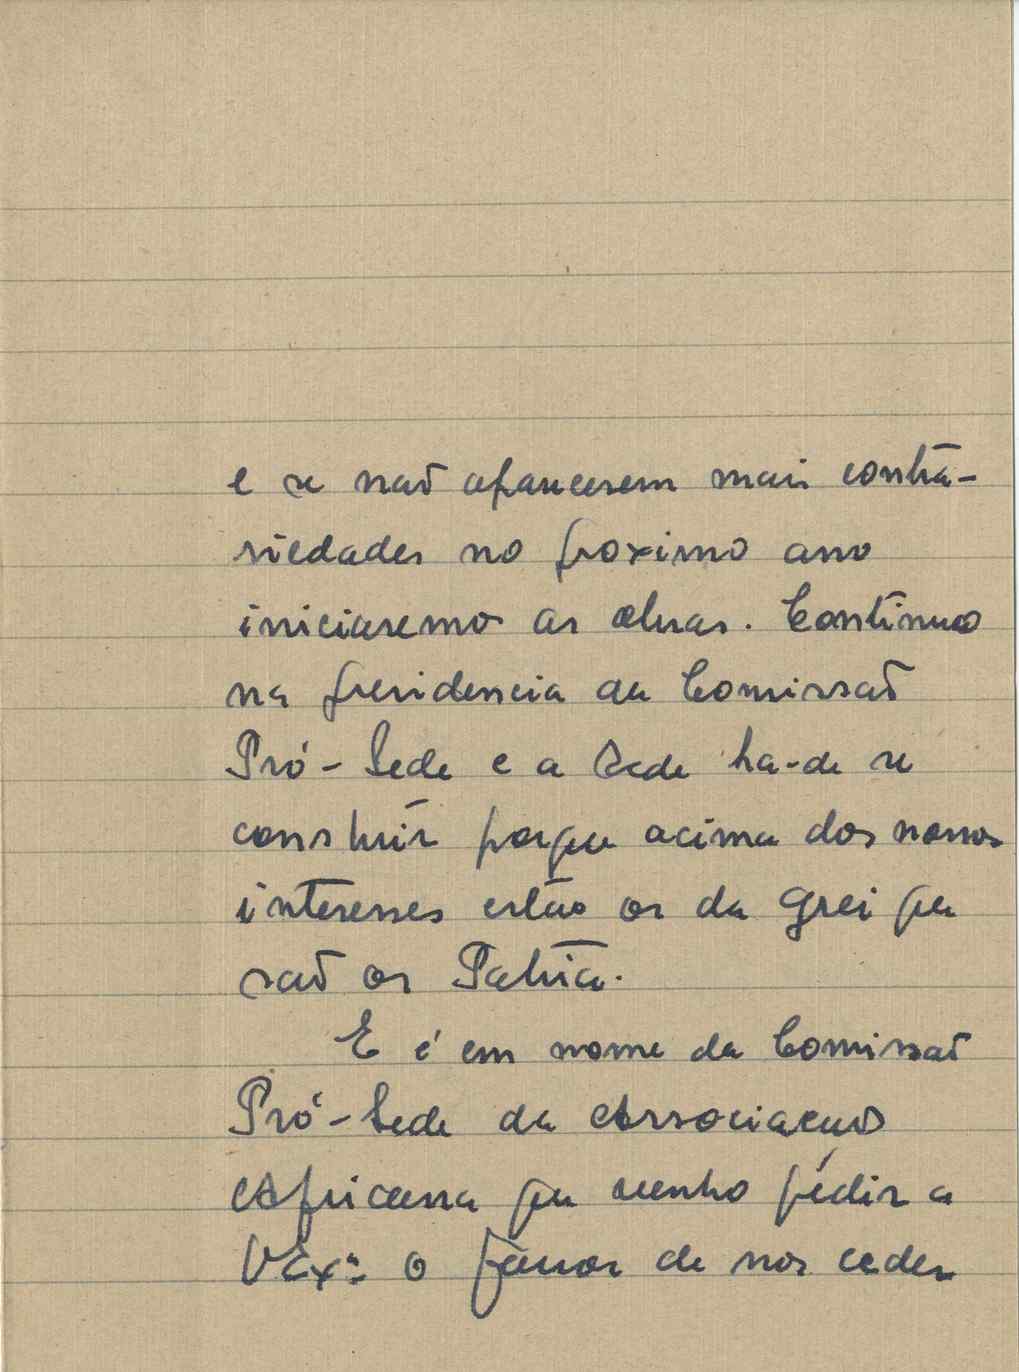 e se não aparecerem mais contra-
riedades no proximo ano
iniciaremo as obras. Continuo
na presidencia da Comissão
Pró-Sede e a Sede ha-de se
construir porque acima dos nossos
interesses estão os da Grei que
são os Patria.
E é em nome da Comissão
Pró-Sede da Associacao
Africana que venho pedir a
VExª o favor de nos ceder